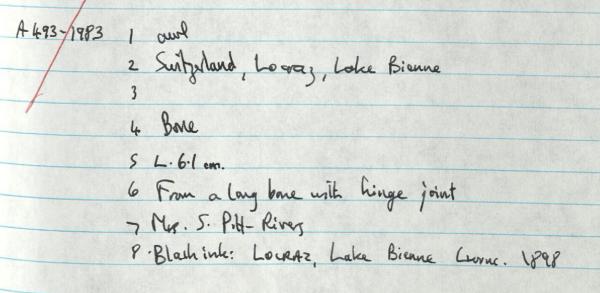 A 493-1983 1 awl
2 Switzerland, Locraz, Lake Bienne
3
4 Bone
5 L. 6.1 cm.
6 From a long bone with hinge joint
7 Mrs. S. Pitt-Rivers
8. Black ink: LOCRAZ, Lake Bienne 1898